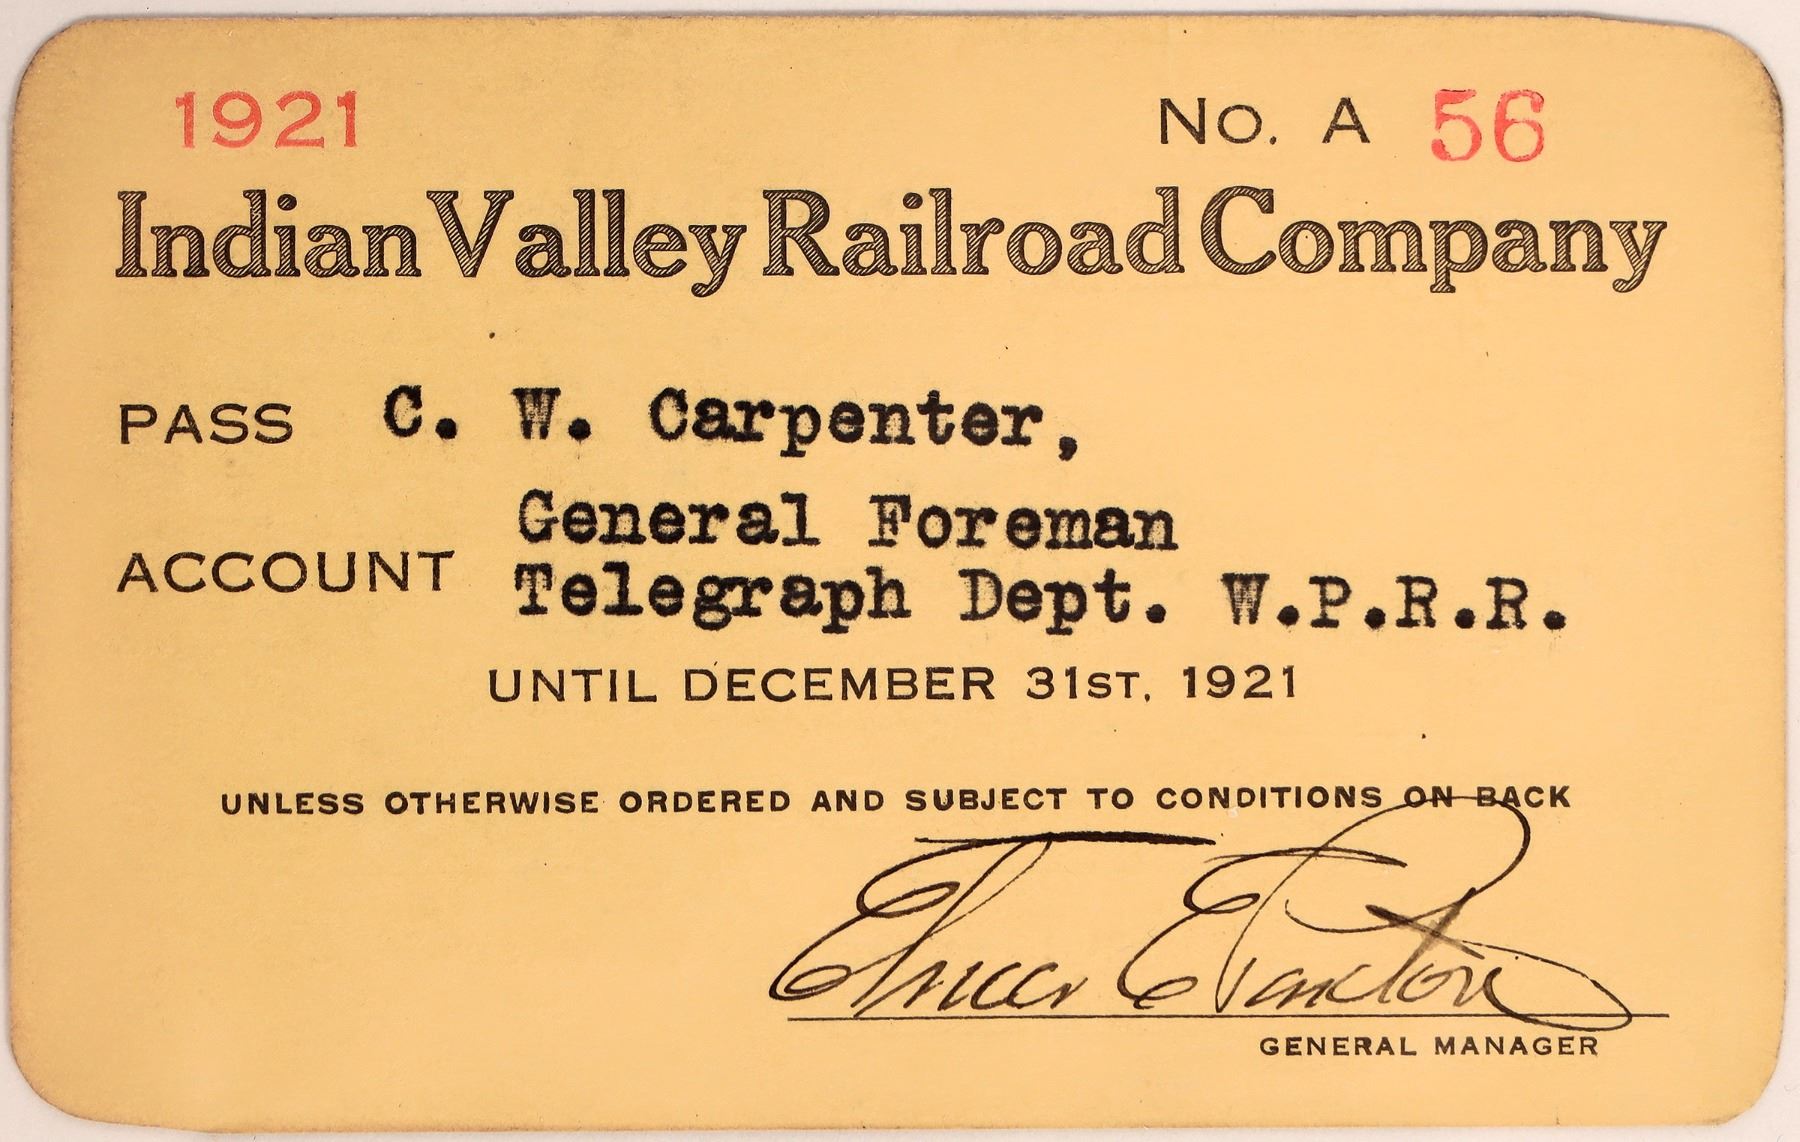 1921 No. A 56
Indian Valley Railroad Company
PASS C. W. Carpenter,
General Foreman
ACCOUNT Telegraph Dept. W.P.R.R.
UNTIL DECEMBER 31ST, 1921
UNLESS OTHERWISE ORDERED AND SUBJECT TO CONDITIONS ON BACK
GENERAL MANAGER